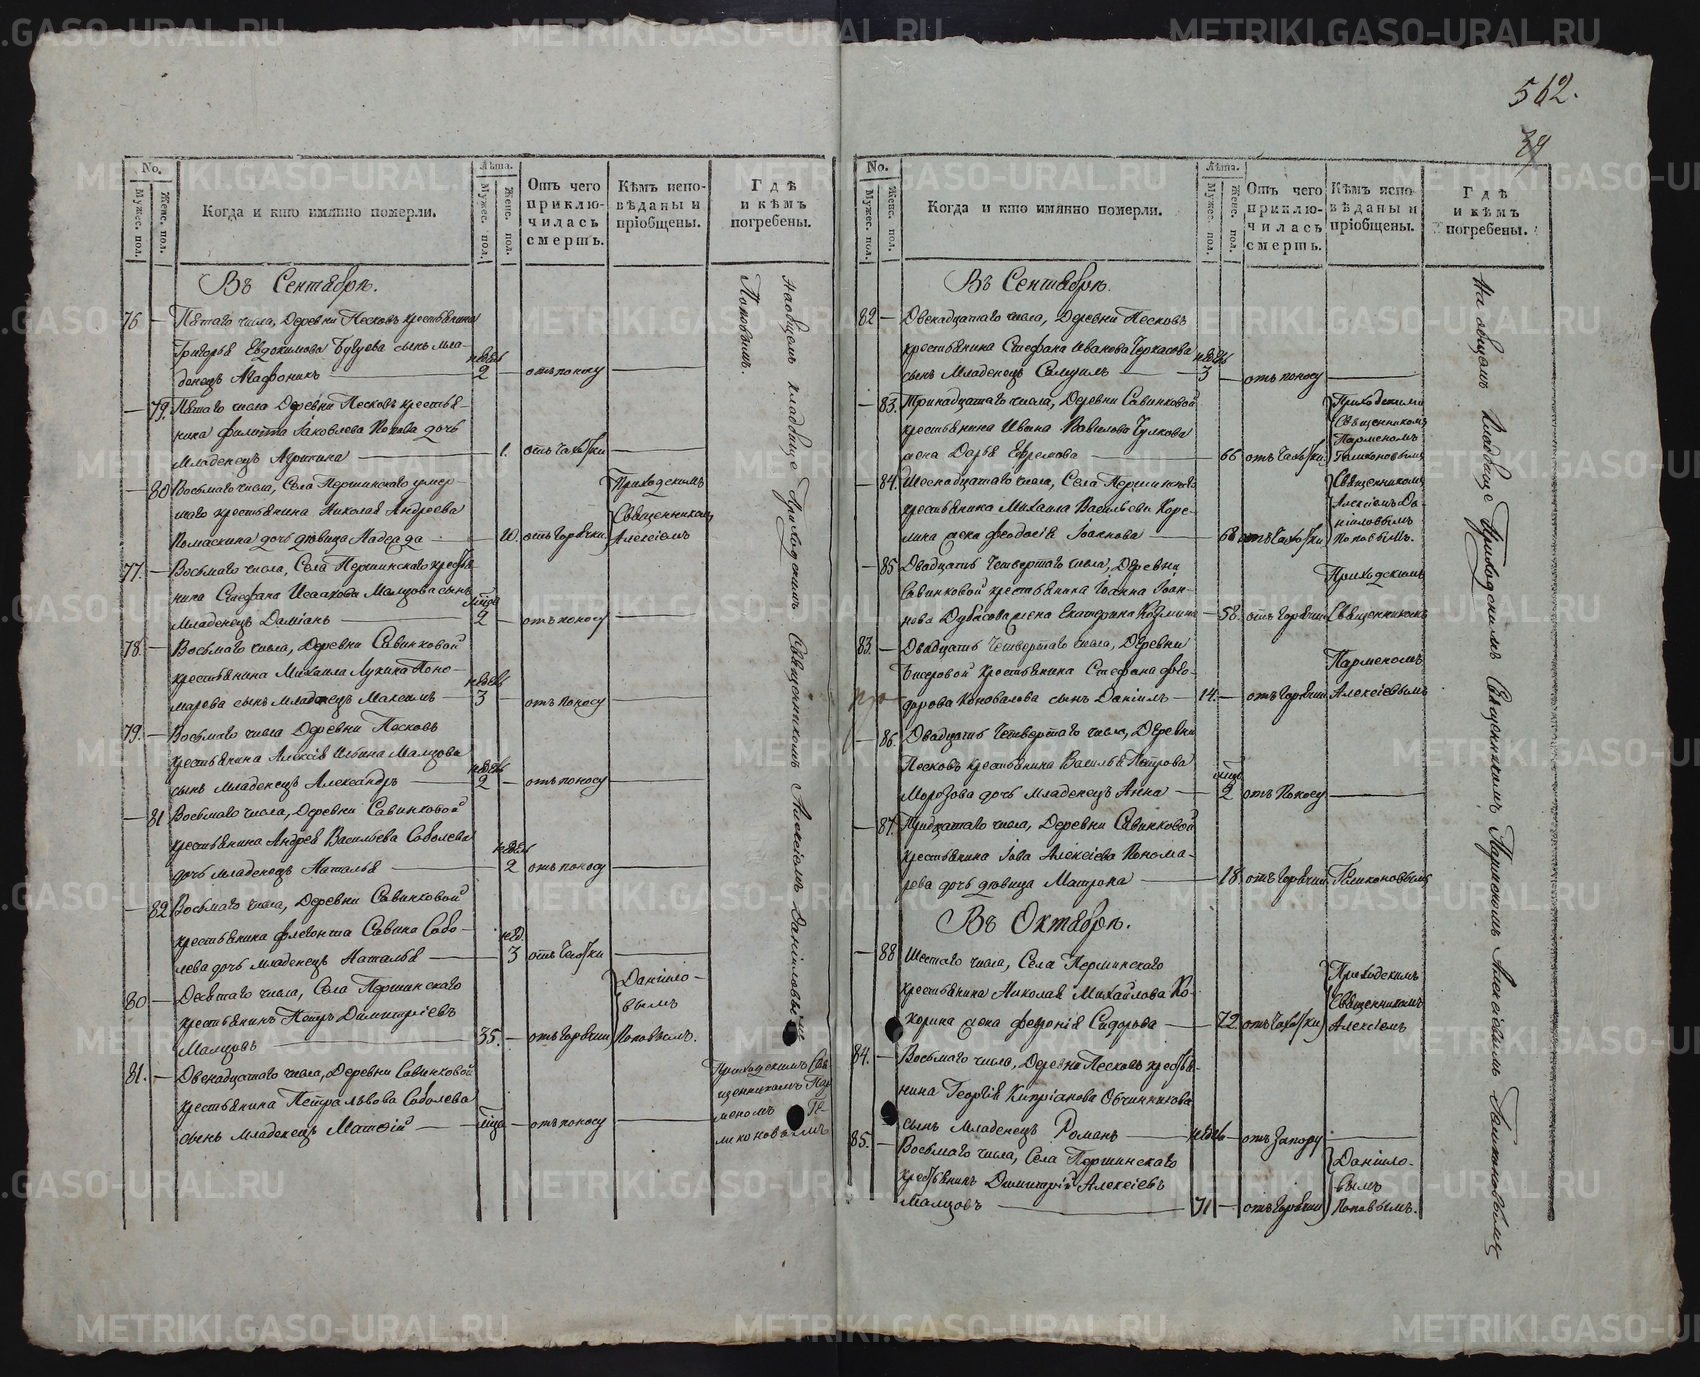 562.
39
No.
Мужес. пол.
Женс. пол.
Когда и кто имянно померли.
Лѣта.
Мужес. пол.
Женс. пол.
Отъ чего приключилась смерть.
Кѣмъ исповѣданы и пріобщены.
Гдѣ и кѣмъ погребены.
Въ Сентябрѣ.
76 — Пятаго числа, Деревни Песковъ крестьянина
Григорья Евдокимова сынъ мла-
денецъ Агафоникъ — недѣль 2 — отъ поносу —
— 79. Пятаго числа Деревни Песковъ крестья-
нина Филиппа Іаковлева Попова дочь
Младенецъ — 1. отъ чахотки —
— 80 Восьмаго числа, Села Першинскаго умер-
шаго крестьянина Николая Андреева
дочь дѣвица Надежда — отъ горячки
Приходскимъ
Священникомъ
Алексіемъ
77. — Восьмаго числа, Села Першинскаго крестья-
нина Стефана Исаакова Мальцова сынъ
Младенецъ Даміанъ — мѣсяца 2 — отъ поносу —
78. — Восьмаго числа, Деревни Савинковой
крестьянина Михаила Лукина Поно-
марева сынъ младенецъ Максимъ — недѣль 3 — отъ поносу —
79. — Восьмаго числа Деревни Песковъ
крестьянина Алексія Ильина Мальцова
сынъ младенецъ Александръ — недѣль 2 — отъ поносу —
— 81 Восьмаго числа, Деревни Савинковой
крестьянина Андрея Васильева Соболева
дочь младенецъ Наталья — недѣль 2 отъ поносу —
— 82 Восьмаго числа, Деревни Савинковой
крестьянина Флегонта Савина Собо-
лева дочь младенецъ Наталья — нед. 3 —
80 — Десятаго числа, Села Першинскаго
крестьянинъ Петръ Димитріевъ
Мальцовъ — 35. — отъ горячки
Даніило-
вымъ
Поповымъ.
81. — Двенадцатаго числа, Деревни Савинковой
крестьянина Петра Львова Соболева
сынъ младенецъ Матѳій — мѣсяца — отъ поносу —
На общемъ кладбище Приходскимъ Священникомъ Алексіемъ Даніиловымъ
Поповымъ.
Приходскимъ Свя-
щенникомъ Пар-
меномъ Ге-
ликоновымъ
No.
Мужес. пол.
Женс. пол.
Когда и кто имянно померли.
Лѣта.
Мужес. пол.
Женс. пол.
Отъ чего приключилась смерть.
Кѣмъ исповѣданы и пріобщены.
Гдѣ и кѣмъ погребены.
Въ Сентябрѣ.
82 — Двенадцатаго числа, Деревни Песковъ
крестьянина Стефана Иванова Черкасова
сынъ Младенецъ Самуилъ — недѣль 3 — отъ поносу —
— 83. Тринадцатаго числа, Деревни Савинковой
крестьянина Ивана Вавилова Чулкова
жена Дарья Ефремова — 66 отъ чахотки
Приходскими
Священникомъ
Парменомъ
Геликоновымъ
— 84. Шеснадцатаго числа, Села Першинскаго
крестьянина Михаила Васильева Коре-
лина жена Феодосія Іоаннова — 68 отъ чахотки
Священникомъ
Алексіемъ Да-
ніиловымъ
Поповымъ.
— 85 Двадцать четвертаго числа, Деревни
Савинковой крестьянина Іоанна Іоан-
нова Дубасова жена Екатерина Козмина — 58. отъ горячки
Приходскимъ
Священникомъ
83. — Двадцать четвертаго числа, Деревни
крестьянина Стефана Фео-
дорова Коновалова сынъ Даніилъ — 14. — отъ горячки
Парменомъ
Алексіевымъ
— 86. Двадцать четвертаго числа, Деревни
Песковъ крестьянина Василья Петрова
Морозова дочь младенецъ Анна — мѣсяца 2 отъ поносу —
— 87. Тридцатаго числа, Деревни Савинковой
крестьянина Іова Алексіева Понома-
рева дочь дѣвица Матрона — 18. отъ горячки Геликоновымъ
Въ Октябрѣ.
— 88 Шестаго числа, Села Першинскаго
крестьянина Николая Михайлова Ко-
корина жена Феѵронія Сидорова — 72 отъ чахотки
Приходскимъ
Священникомъ
Алексіемъ
84. — Восьмаго числа, Деревни Песковъ крестья-
нина Георгія Кипріанова Овчинникова
сынъ Младенецъ Романъ — недѣль — отъ запору —
85. — Восьмаго числа, Села Першинскаго
крестьянинъ Димитрій Алексіевъ
Мальцовъ — 71 — отъ горячки
Даніило-
вымъ
Поповымъ.
На общемъ кладбище Приходскимъ Священникомъ Парменомъ Алексіевымъ Геликоновымъ
METRIKI.GASO-URAL.RU